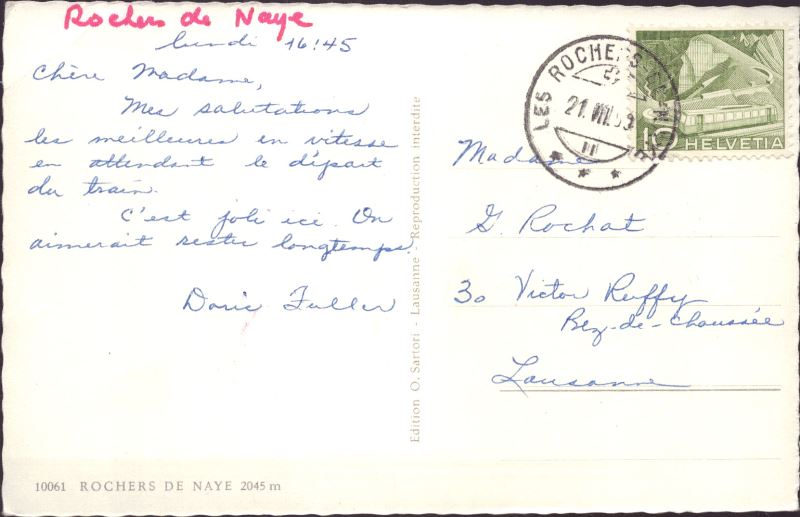 Rochers de Naye
lundi 16:45
Chère Madame,
Mes salutations
les meilleures en vitesse
en attendant le départ
du train.
C'est joli ici. On
aimerait rester longtemps.
Doris Fuller
Edition O. Sartori - Lausanne - Reproduction interdite
10061 ROCHERS DE NAYE 2045 m
LES ROCHERS-DE-NAYE
21.VII.53
10
HELVETIA
Madame
G. Rochat
30 Victor Ruffy
Rez-de-chaussée
Lausanne